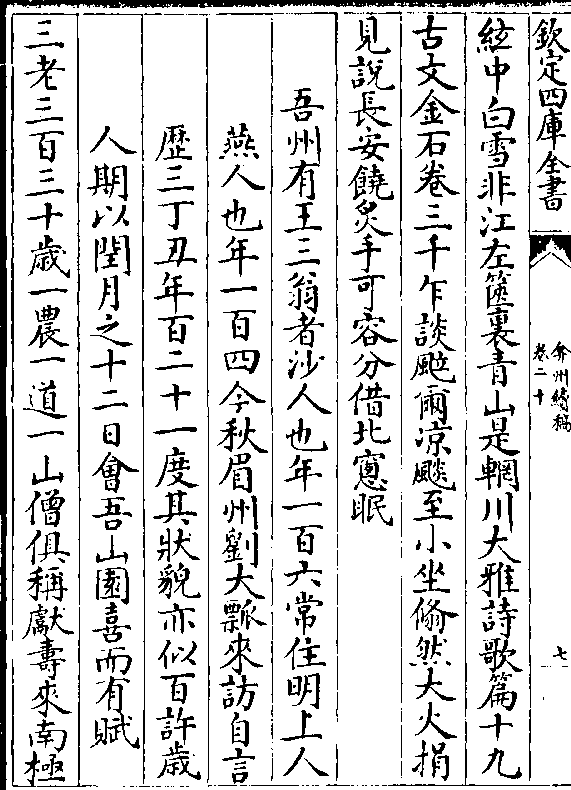 欽定四庫全書
弇州續稿
卷二十
七
絃中白雪非江左篋裏青山是輞川大雅詩歌篇十九
古文金石卷三千乍談颯爾涼飈至小坐翛然大火捐
見說長安饒炙手可容分借北窻眠
吾州有王三翁者沙人也年一百六常住明上人
燕人也年一百四今秋眉州劉大瓢來訪自言
歴三丁丑年百二十一度其狀貌亦似百許歳
人期以閏月之十二日會吾山園喜而有賦
三老三百三十歳一農一道一山僧俱稱獻壽來南極